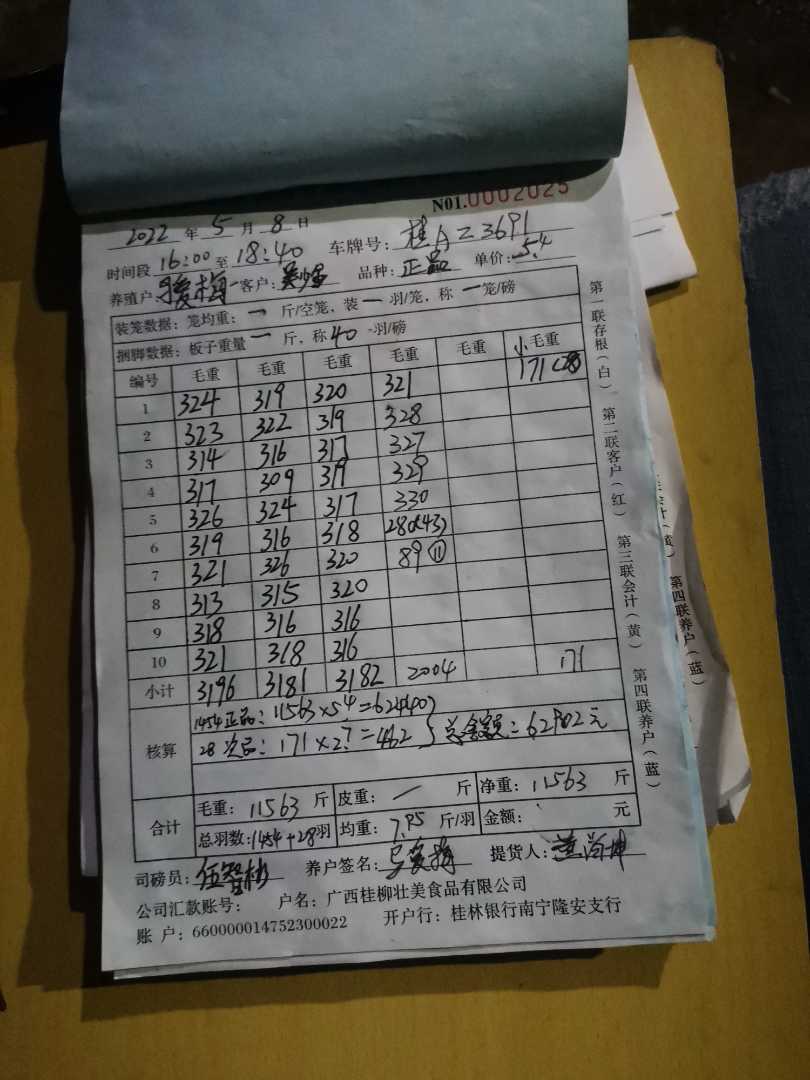 N01.0002025
2022 年 5 月 8 日
时间段 16:00 至 18:40 车牌号: 桂AZ3691
养殖户: 梅 客户: 品种: 正品 单价: 5.4
装笼数据: 笼均重: 一 斤/空笼, 装 一 羽/笼, 称 一 笼/磅
捆脚数据: 板子重量 一 斤, 称 40 羽/磅
编号 毛重 毛重 毛重 毛重 毛重 小毛重
1 324 319 320 321 171 (28)
2 323 322 319 328
3 314 316 317 327
4 317 309 319 329
5 326 324 317 330
6 319 316 318 280(43)
7 321 326 320 89 ⑪
8 313 315 320
9 318 316 316
10 321 318 316
小计 3196 3181 3182 2004 171
核算
1454正品: 11563×5.4=62440
28次品: 171×2.7=462 总金额: 62902元
合计
毛重: 11563 斤 皮重: 一 斤 净重: 11563 斤
总羽数: 1454+28 羽 均重: 7.95 斤/羽 金额: 元
司磅员: 伍智彬 养户签名: 提货人:
公司汇款账号: 户名: 广西桂柳壮美食品有限公司
账 户: 660000014752300022 开户行: 桂林银行南宁隆安支行
第一联存根(白) 第二联客户(红) 第三联会计(黄) 第四联养户(蓝)
第四联养户(蓝)